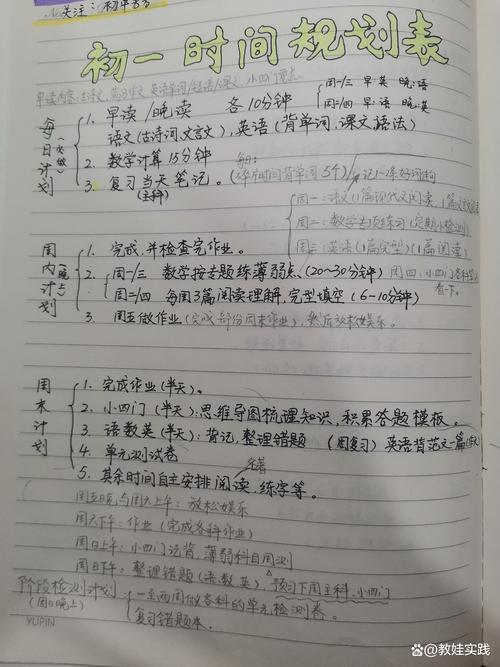 关注:初中
初一时间规划表
早读内容:古诗文、英语单词/短语/课文、小四门
周一/三 早:英 晚:语
1. 早读/晚读 各10分钟
周二/四 早:语 晚:英
语文(古诗词,文言文),英语(背单词,课文,语法)
每日计划
2. 数学计算15分钟
每日:
3. 复习当天笔记。(碎片时间背单词5个)/
(主科)
周一:语文(1篇现代文阅读,1篇
周二:数学专项练习(定期小检测)
周三:英语(1篇完型)(1篇阅读)
周内计划
(晚上)
1. 完成,并检查完作业。
2. 周一/三 数学按专题练薄弱点、(20~30分钟) 周四:小四门各科
看一下。
周二/四 每周3篇阅读理解,完型填空(6-10分钟)
3. 周五做作业(完成部份周末作业),然后放松娱乐。
周末计划
1. 完成作业(半天)。
2. 小四门(半天):思维导图梳理知识,积累答题模板。
3. 语数英(半天):背记,整理错题 (周复习) 英语背范文一篇
4. 单元测试卷
名著
5. 其余时间自主安排阅读,练字等。
周五晚与周六上午:放松娱乐
周六下午:作业(完成各科作业)
周日上午:小四门记背,薄弱科目周测
周日下午:整理错题(语数英),预习下周主科、小四门
阶段检测计划:
(周日晚上)
一至两周做各科的单元检测卷。
复习错题本。
YUPIN
@教娃实践